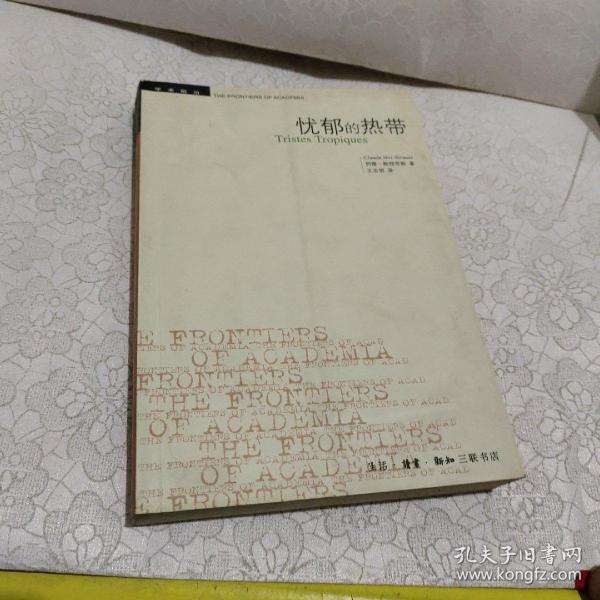 学术前沿 THE FRONTIERS OF ACADEMIA
忧郁的热带
Tristes Tropiques
Claude lévi-Strauss
列维-斯特劳斯 著
王志明 译
E FRONTIERS
OF ACADEMIA
FRONTIERS
THE FRONTIERS
OF ACADEMIA
THE FRONTIERS
OF ACADEM
FRONTIERS
生活·读书·新知三联书店
孔夫子旧书网
www.kongfz.com